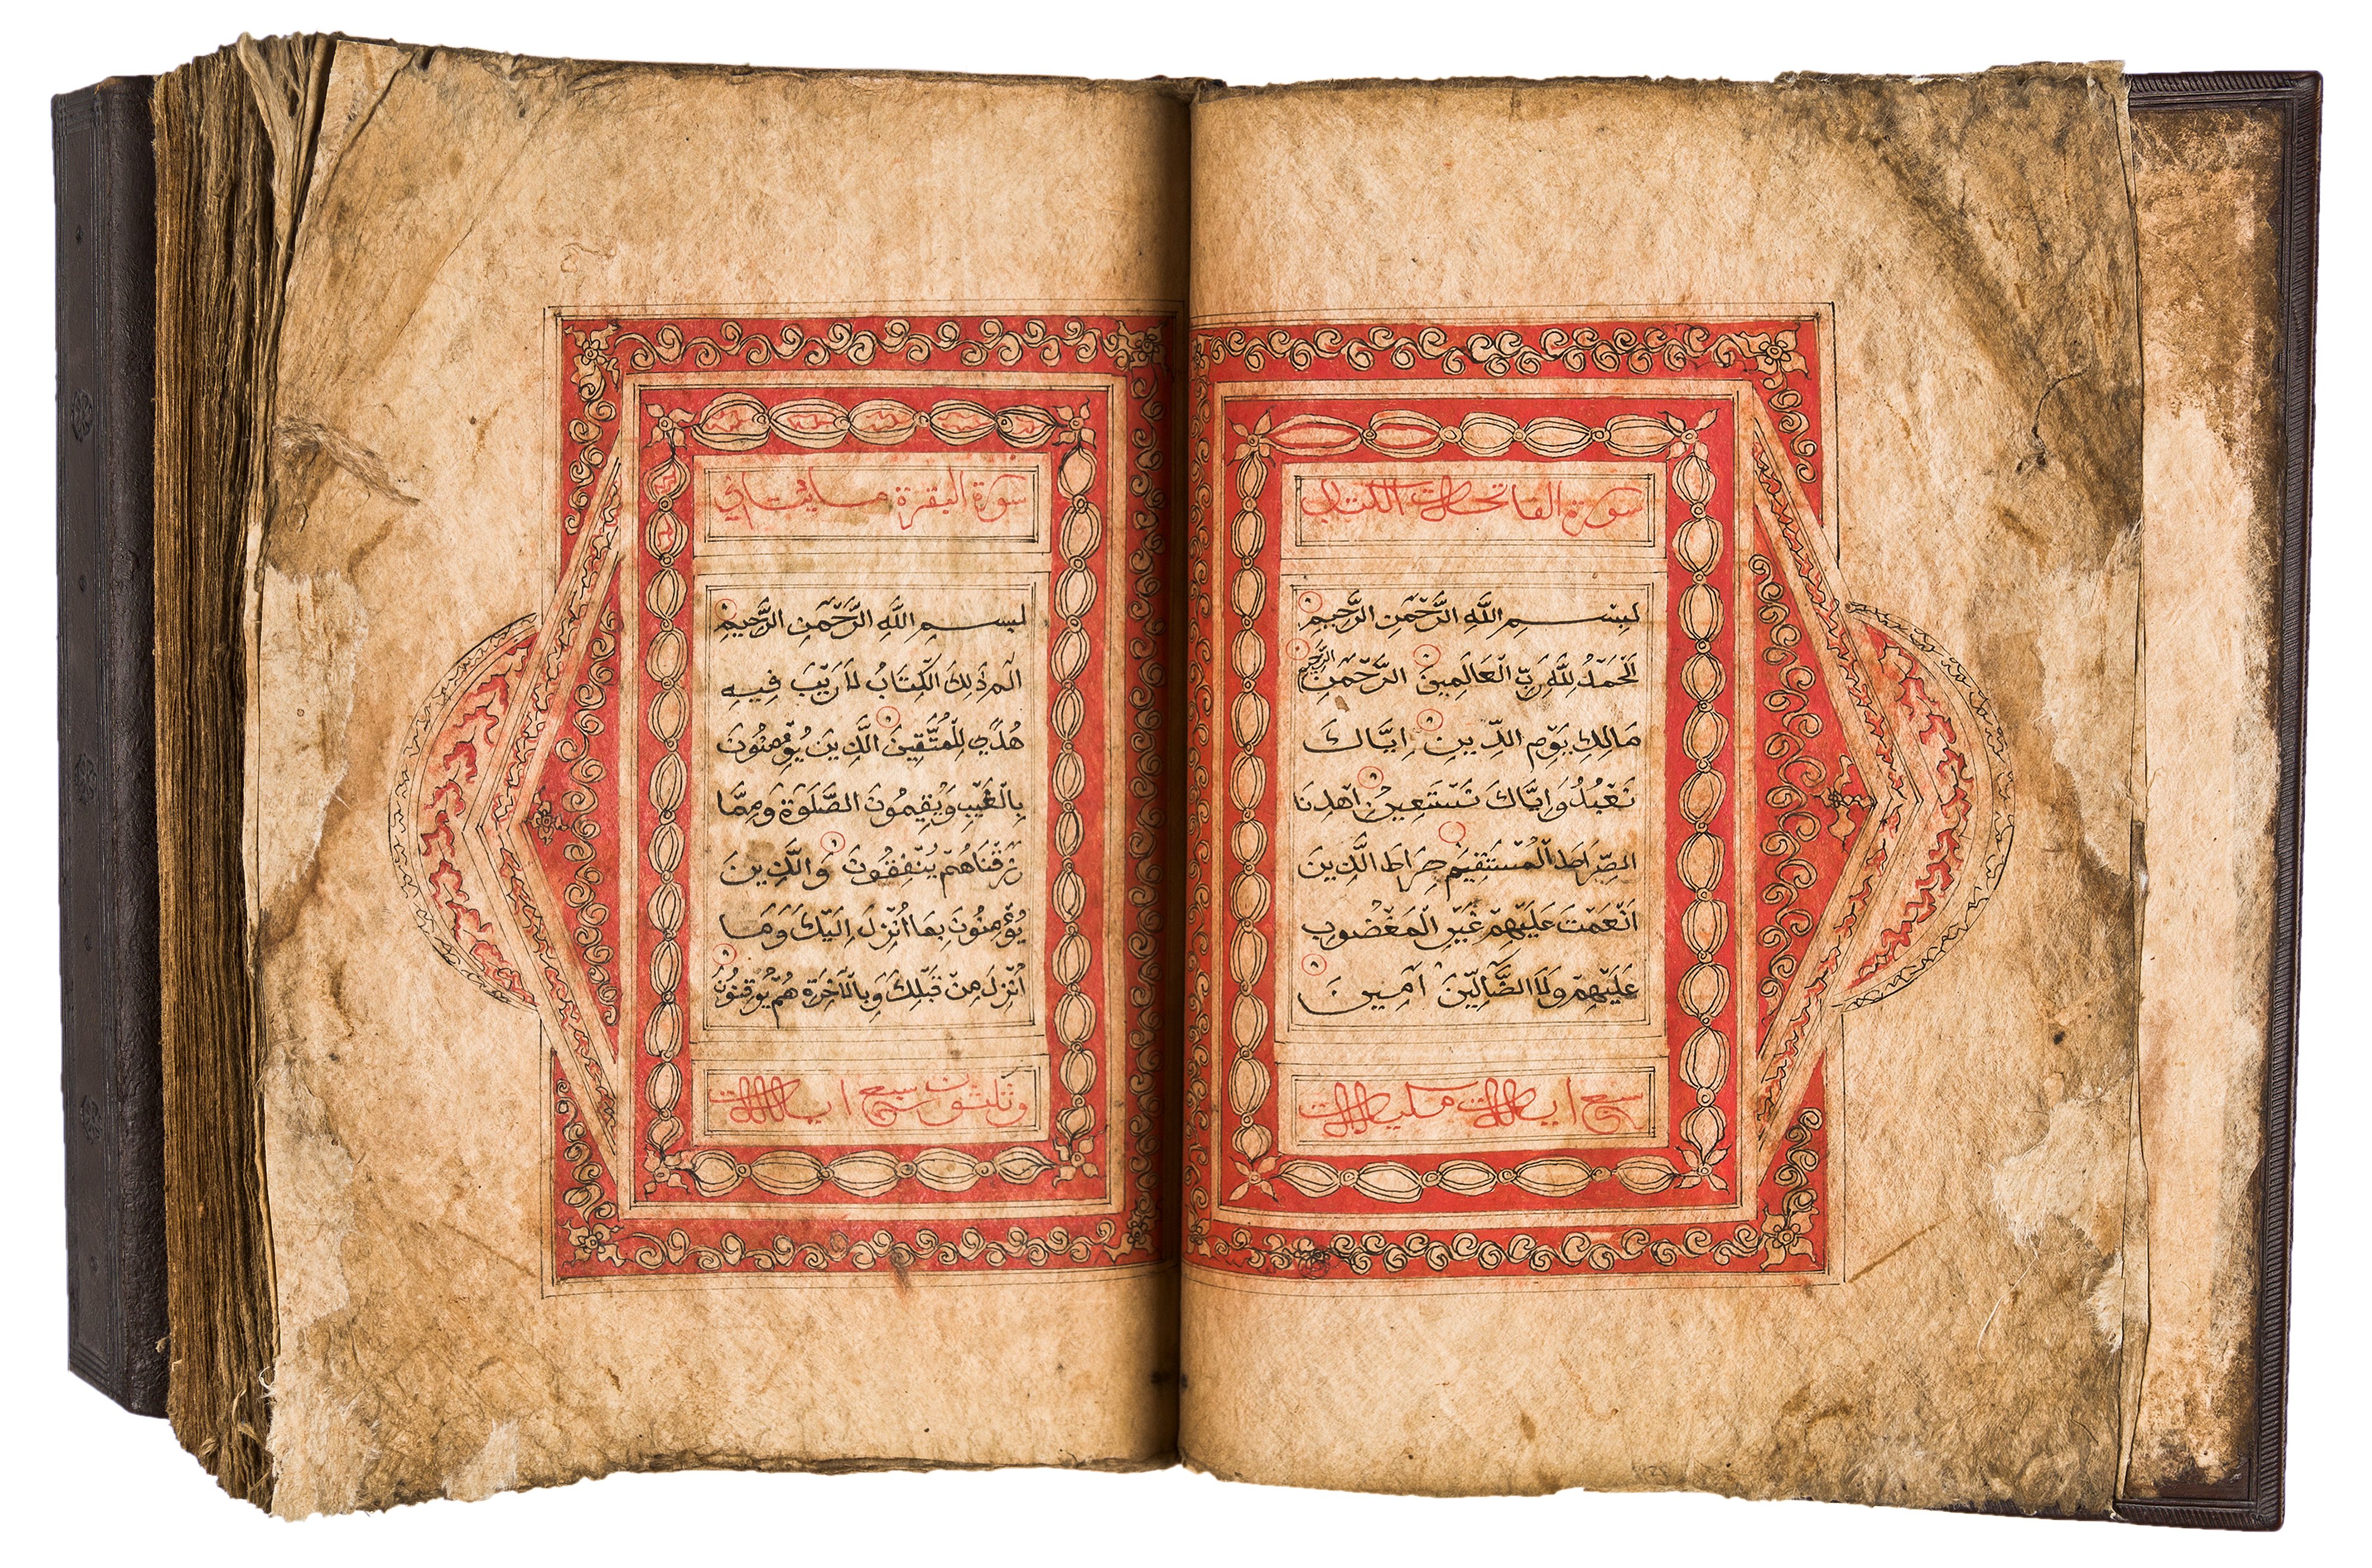 سورة الفاتحات الكتاب
بِسْمِ اللَّهِ الرَّحْمَٰنِ الرَّحِيمِ
اَلْحَمْدُ لِلَّهِ رَبِّ الْعَالَمِينَ الرَّحْمَٰنِ الرَّحِيمِ
مَالِكِ يَوْمِ الدِّينِ اِيَّاكَ
نَعْبُدُ وَاِيَّاكَ نَسْتَعِينُ اهْدِنَا
الصِّرَاطَ الْمُسْتَقِيمَ صِرَاطَ الَّذِينَ
اَنْعَمْتَ عَلَيْهِمْ غَيْرِ الْمَغْضُوبِ
عَلَيْهِمْ وَلَا الضَّآلِّينَ اٰمِينَ
سبع ايات مكيات
سورة البقرة
بِسْمِ اللَّهِ الرَّحْمَٰنِ الرَّحِيمِ
الم ذَلِكَ الْكِتَابُ لَا رَيْبَ فِيهِ
هُدًى لِلْمُتَّقِينَ الَّذِينَ يُؤْمِنُونَ
بِالْغَيْبِ وَيُقِيمُونَ الصَّلَوةَ وَمِمَّا
رَزَقْنَاهُمْ يُنْفِقُونَ وَالَّذِينَ
يُؤْمِنُونَ بِمَا اُنْزِلَ اِلَيْكَ وَمَا
اُنْزِلَ مِنْ قَبْلِكَ وَبِالْاٰخِرَةِ هُمْ يُوقِنُونَ
وثلثون سبع ايات